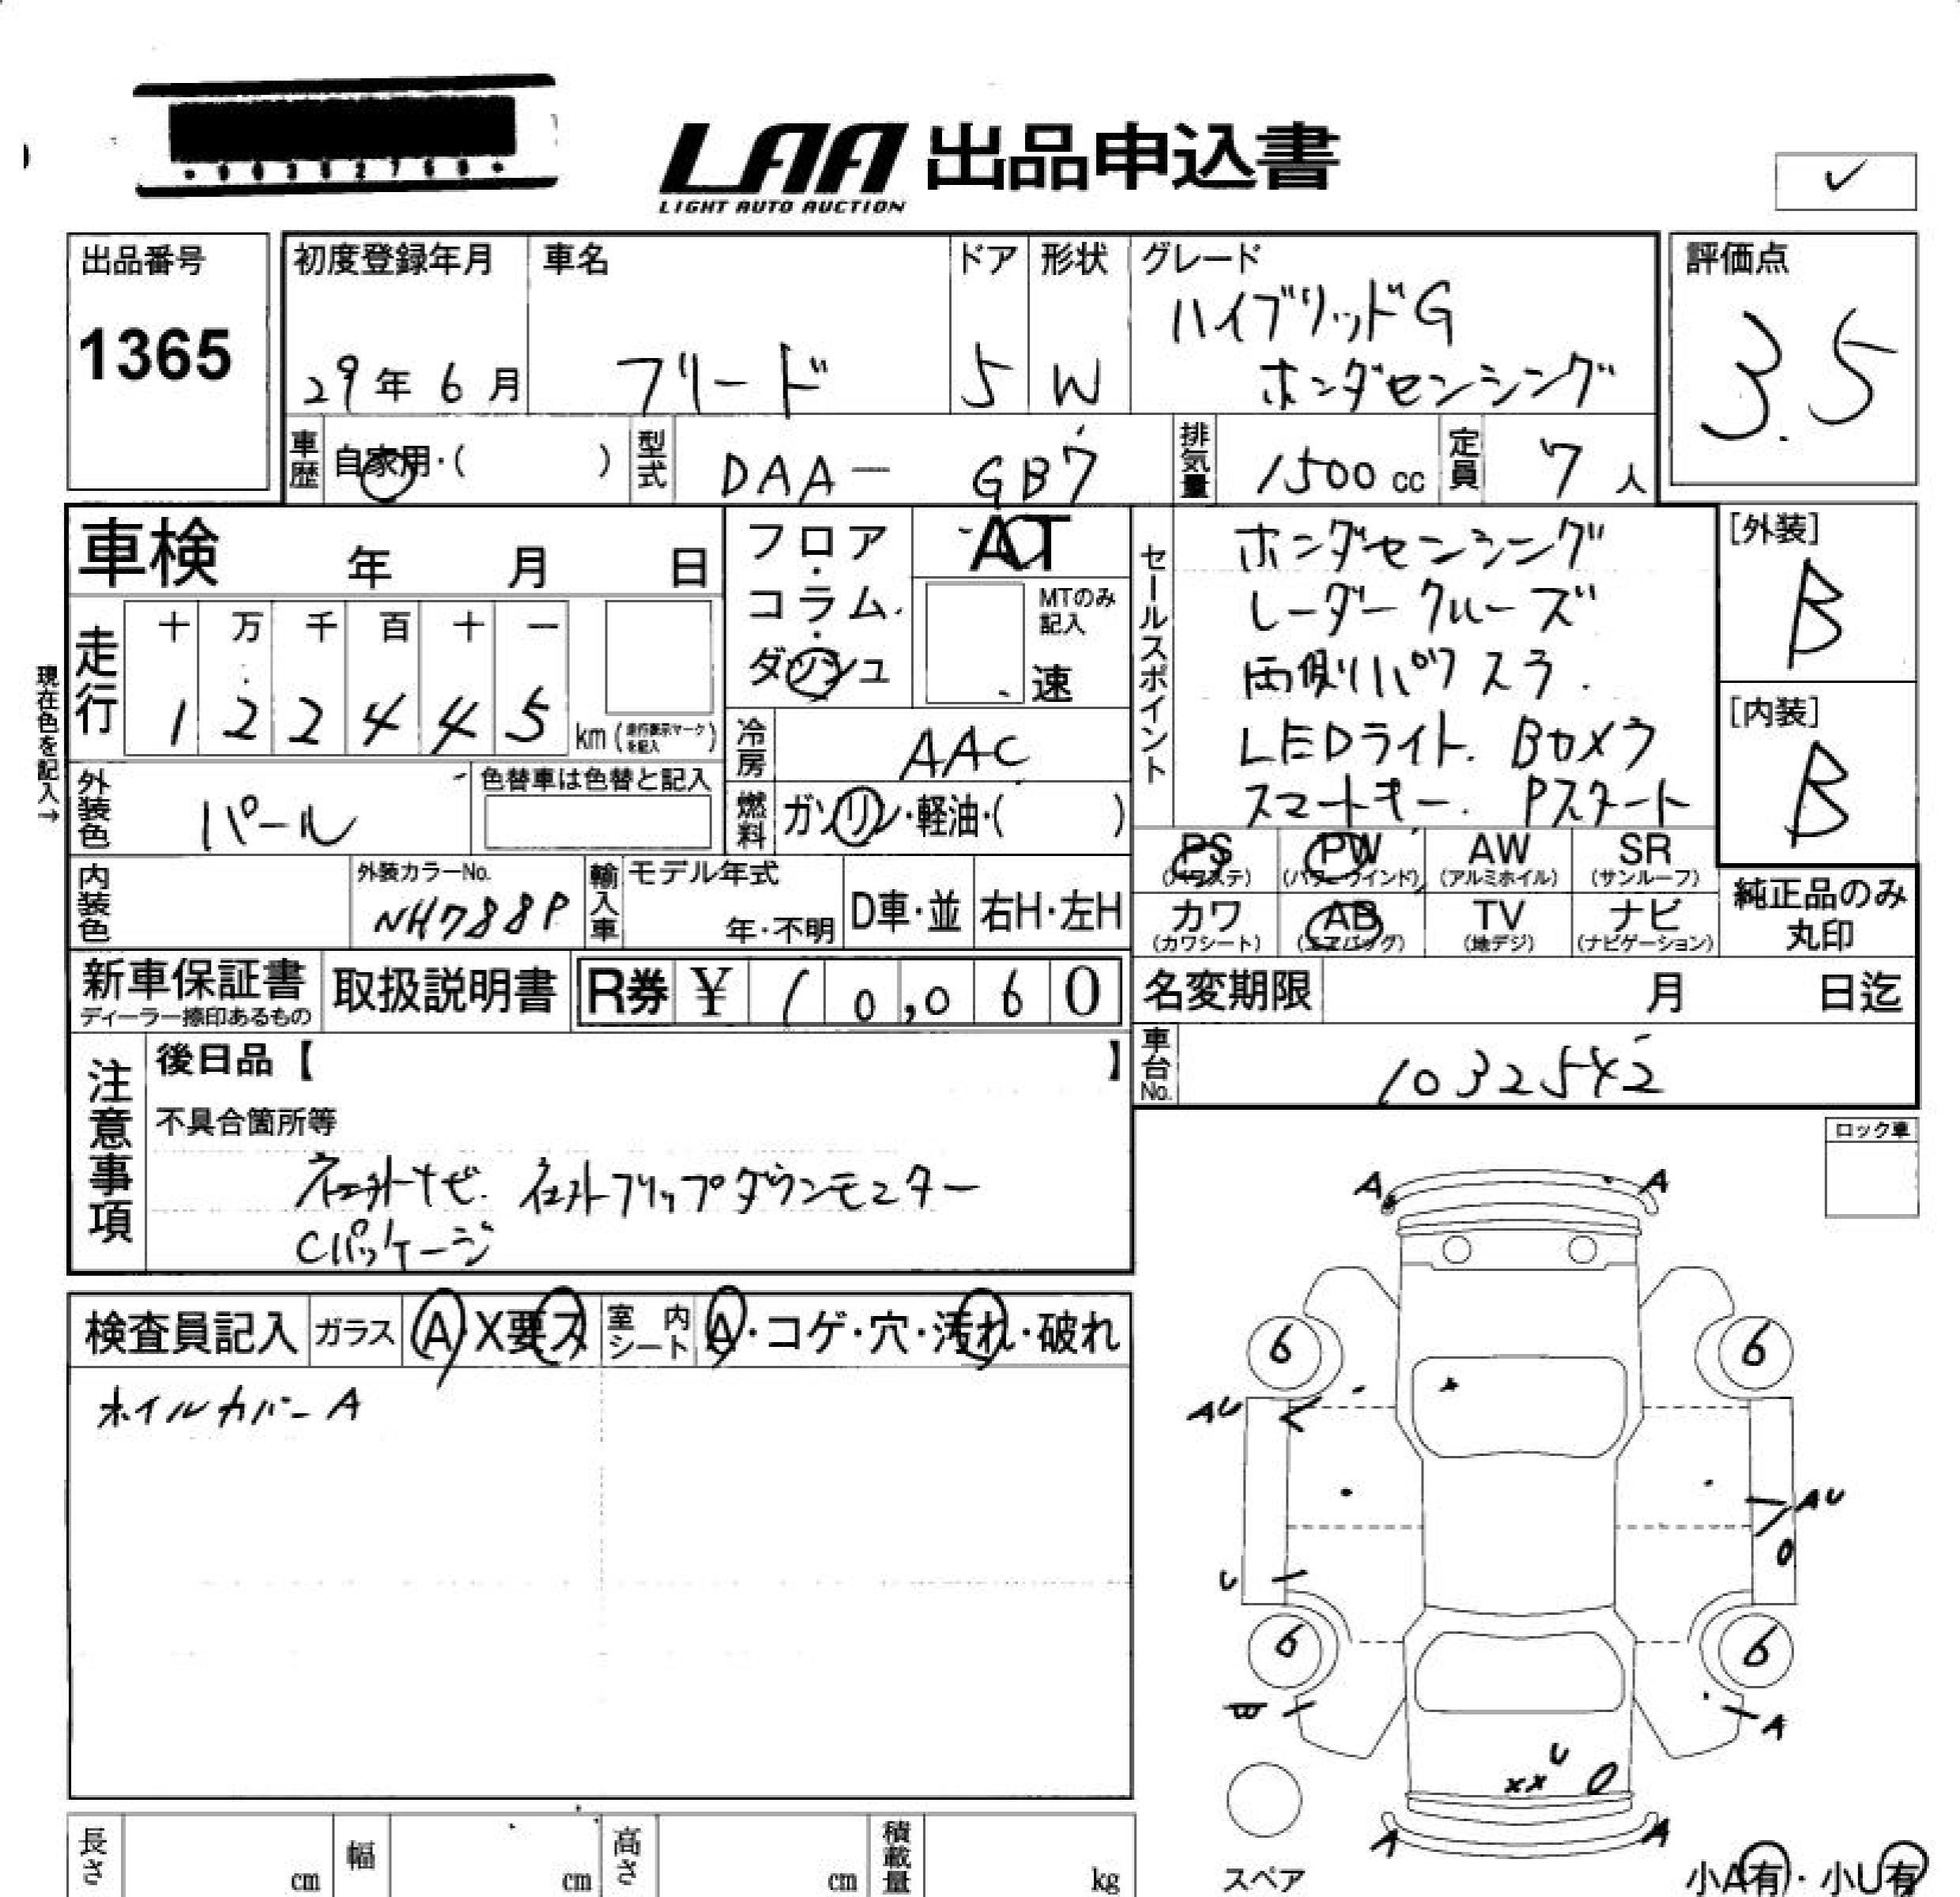 LAA 出品申込書
LIGHT AUTO AUCTION
✓
出品番号
1365
初度登録年月
29年 6月
車名
フリード
ドア
5
形状
W
グレード
ハイブリッドG
ホンダセンシング
評価点
3.5
車歴 自家用・( )
型式 DAA- GB7
排気量 1500cc
定員 7人
車検 年 月 日
フロア・コラム・ダッシュ
AT
MTのみ記入
速
現在色を記入→
走行
十 万 千 百 十 一
1 2 2 4 4 5 km (走行表示マークを記入)
冷房 AAC
燃料 ガソリン・軽油・( )
外装色 パール
色替車は色替と記入
内装色
外装カラーNo.
NH788P
輸入車 モデル年式
年・不明
D車・並
右H・左H
セールスポイント
ホンダセンシング
レーダークルーズ
両側パワスラ
LEDライト. Bカメラ
スマートキー. Pスタート
[外装]
B
[内装]
B
PS (パワステ)
PW (パワーウインド)
AW (アルミホイル)
SR (サンルーフ)
カワ (カワシート)
AB (エアバッグ)
TV (地デジ)
ナビ (ナビゲーション)
純正品のみ
丸印
新車保証書
ディーラー捺印あるもの
取扱説明書
R券 ¥ 10,060
名変期限 月 日迄
車台No. 1032542
注意事項
後日品【 】
不具合箇所等
社外ナビ. 社外フリップダウンモニター
Cパッケージ
ロック車
検査員記入
ガラス A・X要ス
室内シート A・コゲ・穴・汚れ・破れ
ホイルカバーA
A A
6 6
AU
AU
U
6 6
W
A
U
XX
A A
スペア
小A有・小U有
長さ cm
幅 cm
高さ cm
積載量 kg